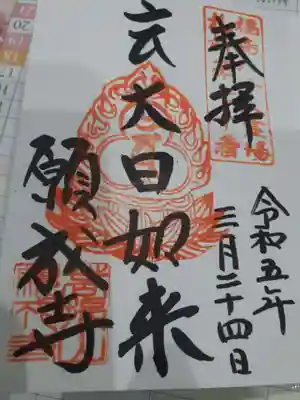 奉拝
令和五年
三月二十四日
大日如来
願成寺